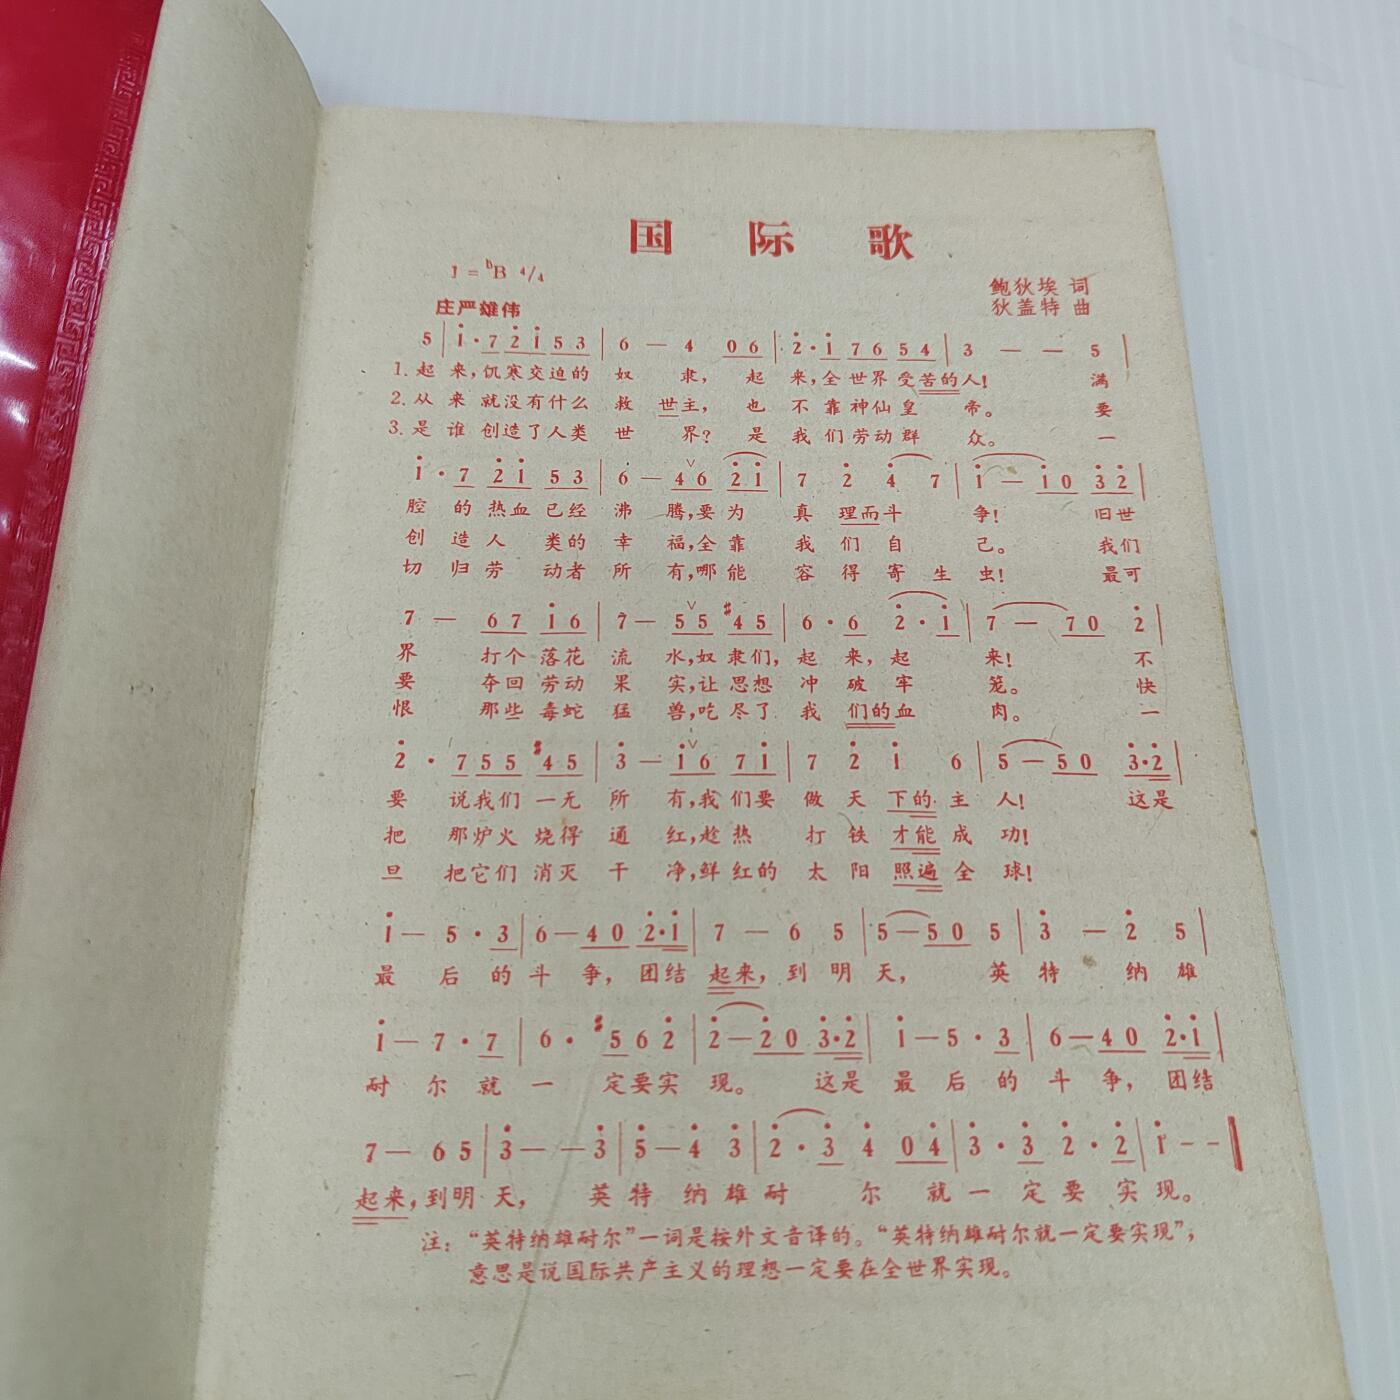 国际歌
1=♭B 4/4
鲍狄埃 词
庄严雄伟
狄盖特 曲
5 | i· 7 2̇ i 5 3 | 6 — 4 0 6 | 2̇· i 7 6 5 4 | 3 — — 5 |
1. 起来,饥寒交迫的奴隶,起来,全世界受苦的人! 满
2. 从来就没有什么救世主,也不靠神仙皇帝。 要
3. 是谁创造了人类世界?是我们劳动群众。 一
i· 7 2̇ i 5 3 | 6 — 4 ∨ 6 2̇ i | 7 2̇ 4̇ 7 | i — i 0 3̇ 2̇ |
腔的热血已经沸腾,要为真理而斗争! 旧世
创造人类的幸福,全靠我们自己。 我们
切归劳动者所有,哪能容得寄生虫! 最可
7 — 6 7 i 6 | 7 — 5 ∨ 5 #4 5 | 6· 6 2̇· i | 7 — 7 0 2̇ |
界打个落花流水,奴隶们,起来,起来! 不
要夺回劳动果实,让思想冲破牢笼。 快
恨那些毒蛇猛兽,吃尽了我们的血肉。 一
2̇· 7 5 5 #4 5 | 3̇ — i ∨ 6 7 i | 7 2̇ i 6 | 5 — 5 0 3̇·2̇ |
要说我们一无所有,我们要做天下的主人! 这是
把那炉火烧得通红,趁热打铁才能成功!
旦把它们消灭干净,鲜红的太阳照遍全球!
i — 5· 3 | 6 — 4 0 2̇·i | 7 — 6 5 | 5 — 5 0 5 | 3̇ — 2̇ 5 |
最后的斗争,团结起来,到明天, 英特纳雄
i — 7· 7 | 6· #5 6 2̇ | 2̇ — 2̇ 0 3̇·2̇ | i — 5· 3 | 6 — 4 0 2̇·i |
耐尔就一定要实现。 这是最后的斗争,团结
7 — 6 5 | 3̇ — — 3̇ | 5̇ — 4̇ 3̇ | 2̇· 3̇ 4̇ 0 4̇ | 3̇· 3̇ 2̇· 2̇ | i – – ‖
起来,到明天, 英特纳雄耐尔就一定要实现。
注:“英特纳雄耐尔”一词是按外文音译的。“英特纳雄耐尔就一定要实现”,
意思是说国际共产主义的理想一定要在全世界实现。